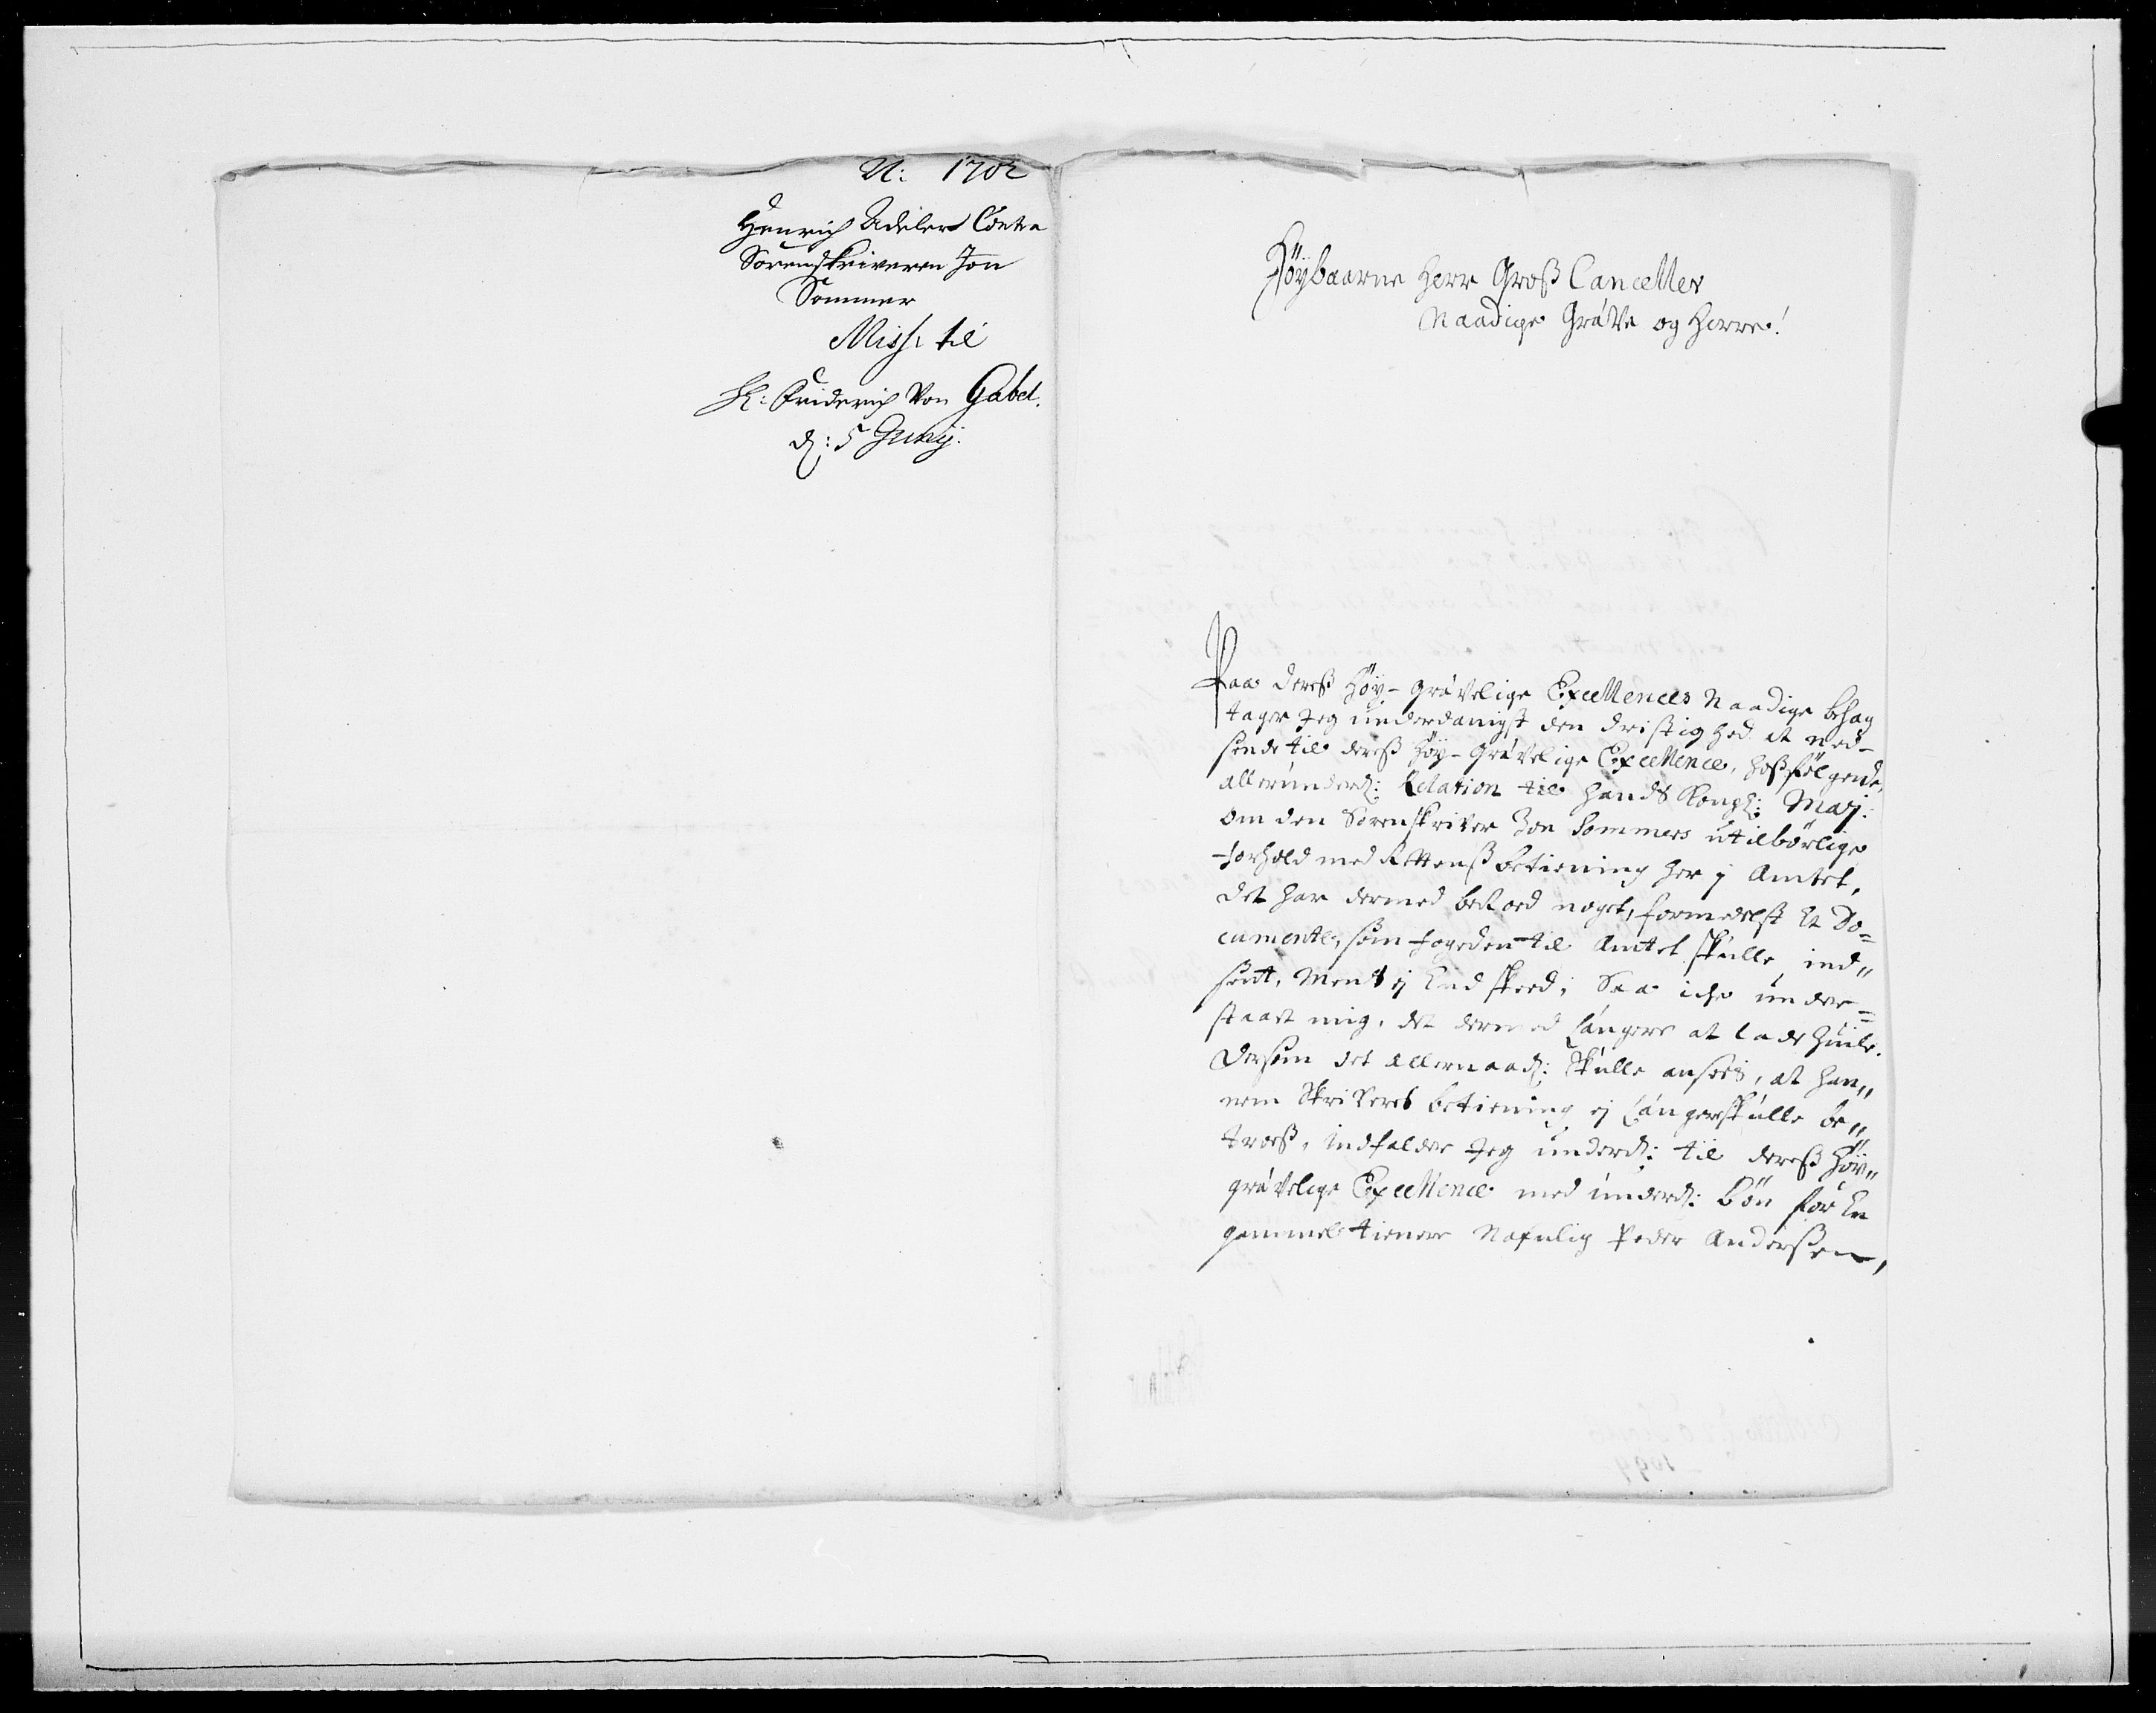 N: 1702
Henrich Adeler Contra
Sorenskriveren Jon
Sommer
Miss: til
H: Friderich von Gabel.
d: 5 Junij.
Höÿbaarne Herr Groß Canceller
Naadige Gräve og Herre!
Paa dereß Höÿ-Grävelige Excellences Naadige behag
tager Jeg underdanigst den dristighed at ned-
sende til dereß Höÿ-Grävelige Excellence, hoßfölgende,
allerunderd: Relation til Hands Kongl: May:
om den Sorenskriver Jon Sommers utilbörlige
forhold med Rettens betiening her i Amtet,
det har dermed beroed noget, formedelst Et Do=
cumente, som fogeden til Amtet skulle ind„
sent, Mens ej End skeed; Saa icke under=
staaer mig, det dermed längere at lade huile.
Dersom det allernaad: skulle ansees, at han„
nem Skriverens betiening ej längere skulle be„
troeß, indfalder Jeg underd: til dereß Höÿ„
grävelige Excellence med underd: Bön for En
gammel tienere Nafnlig Peder Anderßen,